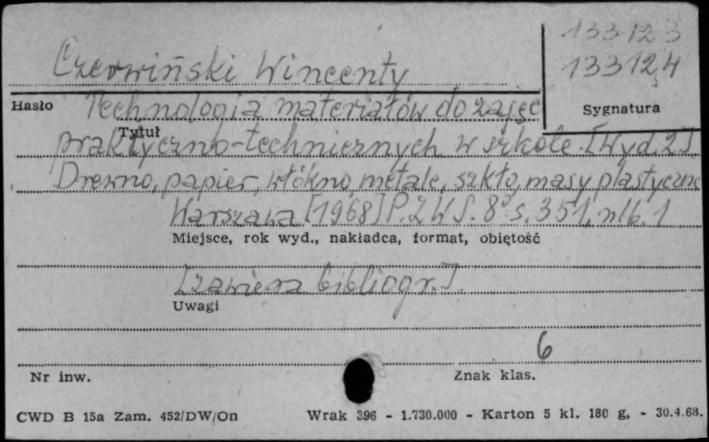 133123
133124
Czerwiński Wincenty
Hasło
Sygnatura
Technologia materiałów do zajęć
Tytuł
praktyczno-technicznych w szkole. [Wyd. 2]
Drewno, papier, włókno, metale, szkło, masy plastyczne
Warszawa [1968] P.Z.W.S. 8° s. 351, nlb. 1
Miejsce, rok wyd., nakładca, format, objętość
[zawiera bibliogr.]
Uwagi
6
Nr inw.
Znak klas.
CWD B 15a Zam. 452/DW/On
Wrak 396 - 1.730.000 - Karton 5 kl. 180 g. - 30.4.68.